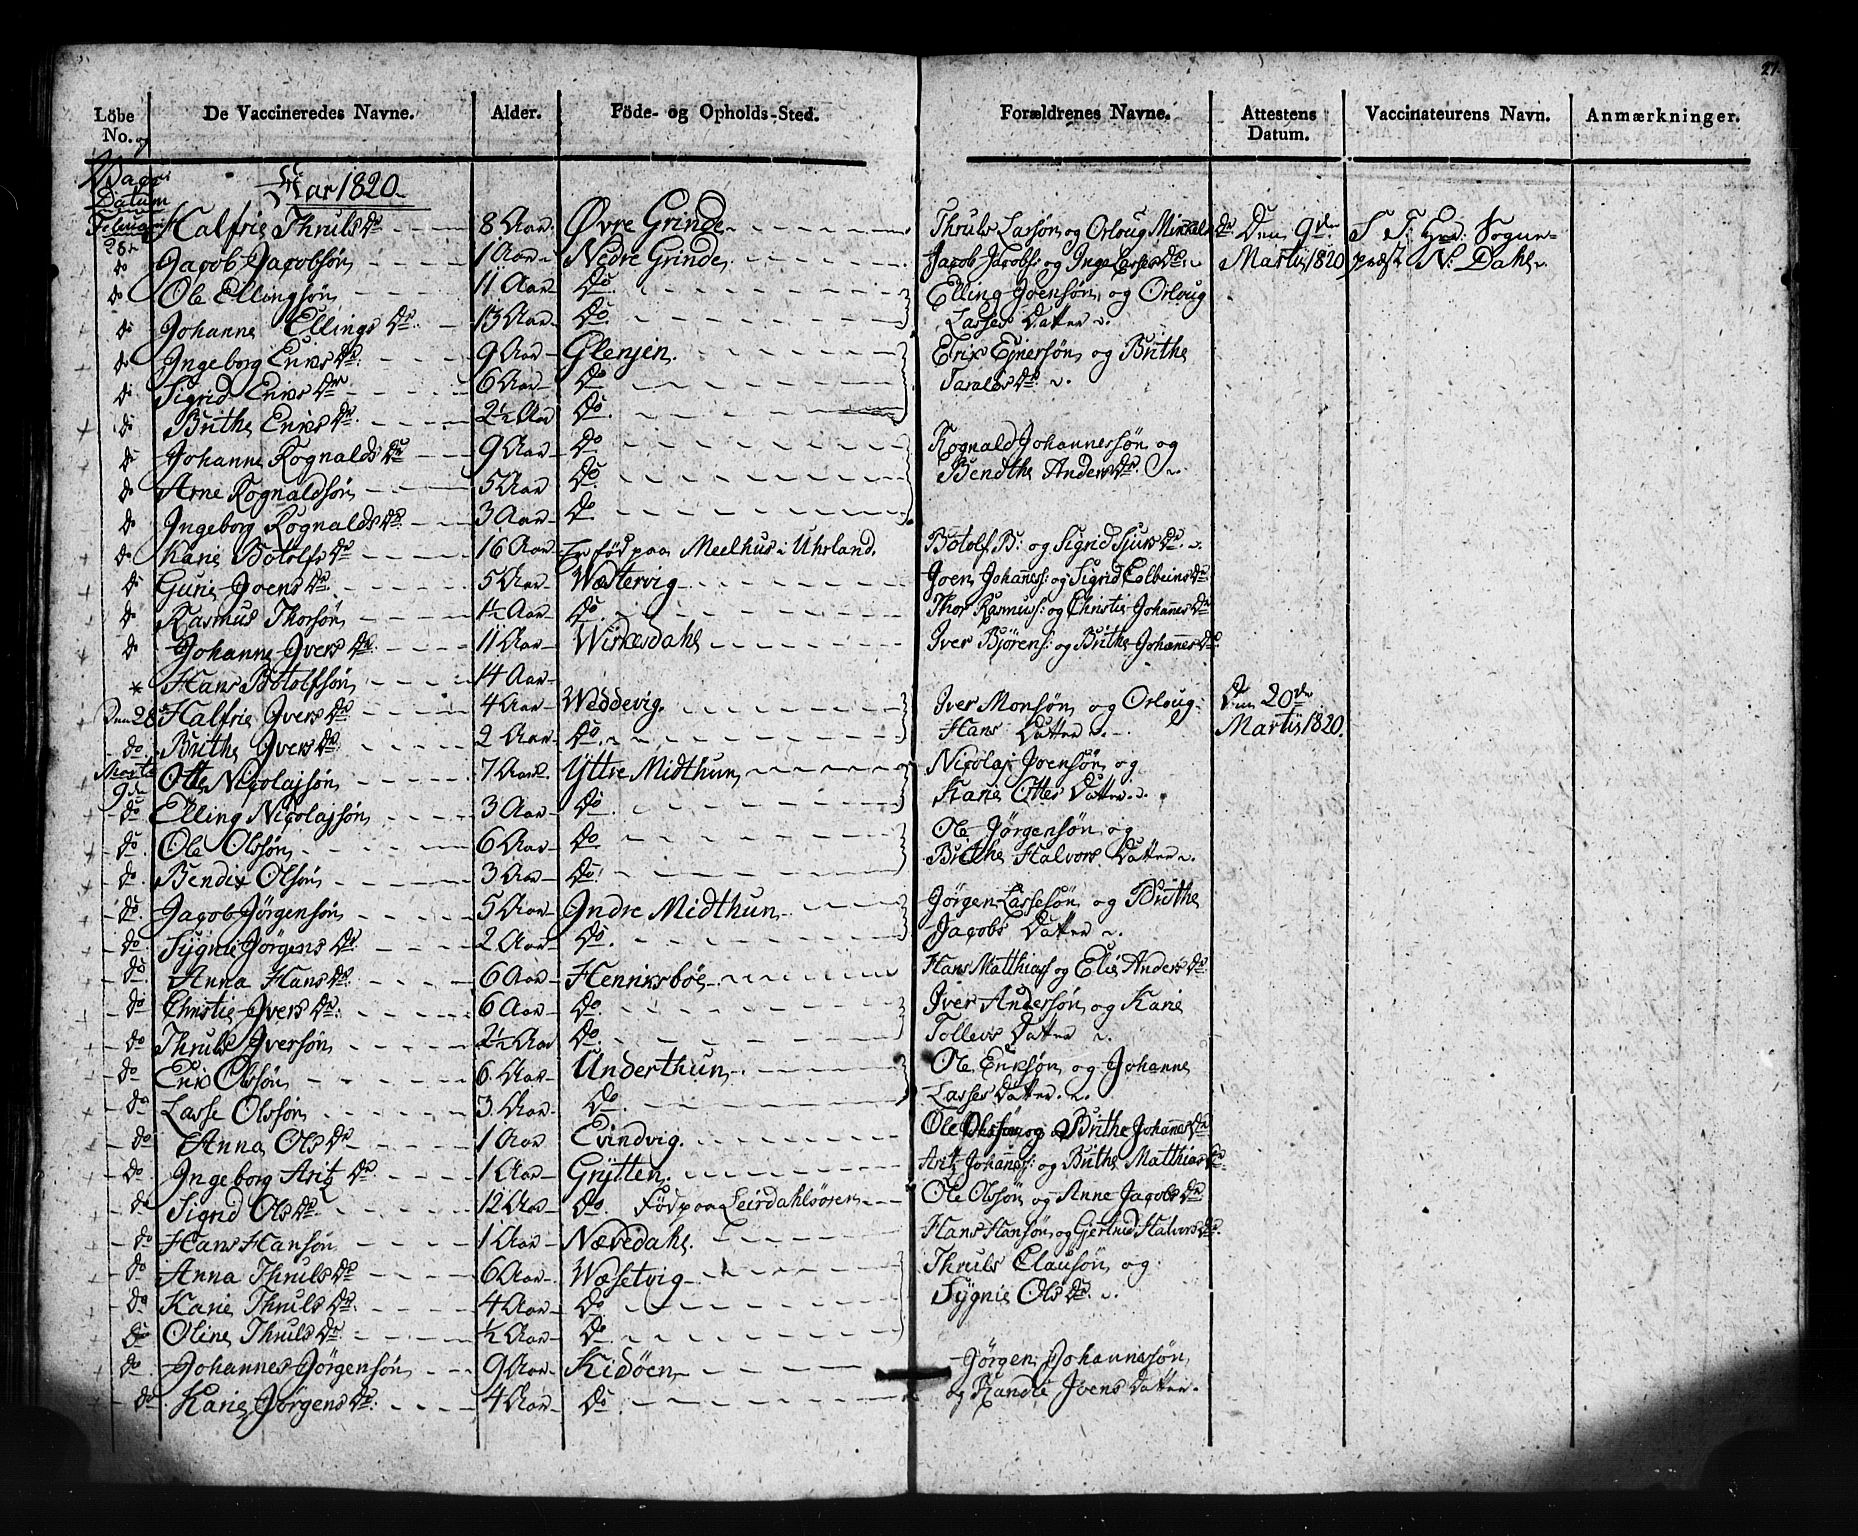 27.
Löbe No. De Vaccineredes Navne. Alder. Föde- og Opholds-Sted. Forældrenes Navne. Attestens Datum. Vaccinateurens Navn. Anmærkninger.
Datum Aar 1820
Februarii 28 Halfrie Thruls Dr 8 Aar Øvre Grinde Thruls Larsøn og Orloug Mikkels Dr. Den 9de S. T. Hr. Sogne-
do Jacob Jacobsøn 1 Aar Nedre Grinde Jacob Jacobs: og Inge Lasses Dr. Martii 1820 præst N. Dahl
do Ole Ellingsøn 11 Aar Do Elling Joensøn og Orloug
do Johanne Ellings Dr. 13 Aar Do. Lasses Datter
do Ingeborg Eriks Dr. 9 Aar Glenjen. Erik Ejnersøn og Brithe
do Sigrid Eriks Dr 6 Aar Do Taralds Dr.
do Brithe Eriks Dr. 2½ Aar Do.
do Johanne Rognalds Dr 9 Aar Do Rognald Johannessøn og
do Arne Rognaldsøn 5 Aar Do Bendthe Anders Dr.
do Ingeborg Rognalds Dr. 3 Aar Do
do Karie Botolfs Dr 16 Aar Er fød paa Meelhus i Uhrland. Botolf B: og Sigrid Sjurs Dr.
do Gurie Joens Dr. 5 Aar Wæstervig Joen Johaness: og Sigrid Colbeins Dr.
do Rasmus Thorsøn 1½ Aar Do Thor Rasmuss: og Christie Johannes Dr
do Johanne Ivers Dr. 11 Aar Wirkesdahl Iver Bjørens: og Brithe Johannes Dr.
* Hans Botolfsøn 14 Aar
Den 28 Halfrie Ivers Dr 4 Aar Weddevig. Iver Monsøn og Orloug Den 20de
do. Brithe Ivers Dr. 2 Aar Do. Hans Datter Martii 1820.
Martii 9de Otte Nicolajsøn 7 Aar Yttre Midthun Nicolaj Joensøn og
do Elling Nicolajsøn 3 Aar Do Karie Ottes Datter.
do. Ole Olssøn 6 Aar Do Ole Jørgensøn og
do. Bendix Olsøn 3 Aar Do. Brithe Halvors Datter
do. Jacob Jørgensøn 5 Aar Indre Midthun Jørgen Lassesøn og Brithe
do Sygnie Jørgens Dr 2 Aar Do. Jacobs Datter
do. Anna Hans Dr. 6 Aar Henriksbøe Hans Matthias og Elie Anders Dr.
do Christie Ivers Dr. 6 Aar Do. Iver Andersøn og Karie
do Thruls Iversøn 2½ Aar Do. Tollevs Datter
do Erik Olssøn 6. Aar Underthun Ole Eriksøn og Johanne
do Lasse Olssøn 3. Aar Do. Lasses Datter.
do Anna Ols Dr 1 Aar Evindvig. Ole Olssøn og Brithe Johanes Dr
do. Ingeborg Aritz Dr 1 Aar Grÿtten Aritz Johaness: og Brithe Matthias Dr
do Sigrid Ols Dr. 12 Aar Do. Föd paa Leirdahlsören Ole Olssøn og Anne Jacobs Dr
do Hans Hansøn 1 Aar Nævedahl Hans Hansøn og Gjertrud Halvors Dr.
do Anna Thruls Dr 6 Aar Wæsetvig Thruls Clausøn og
do Karie Thruls Dr. 4 Aar Do. Sygnie Ols Dr.
do Oline Thruls Dr. ½ Aar Do
do Johannes Jørgensøn 9 Aar Kidöen Jørgen Johannessøn
do Karie Jørgens Dr. 4 Aar Do. og Randie Joens Datter.